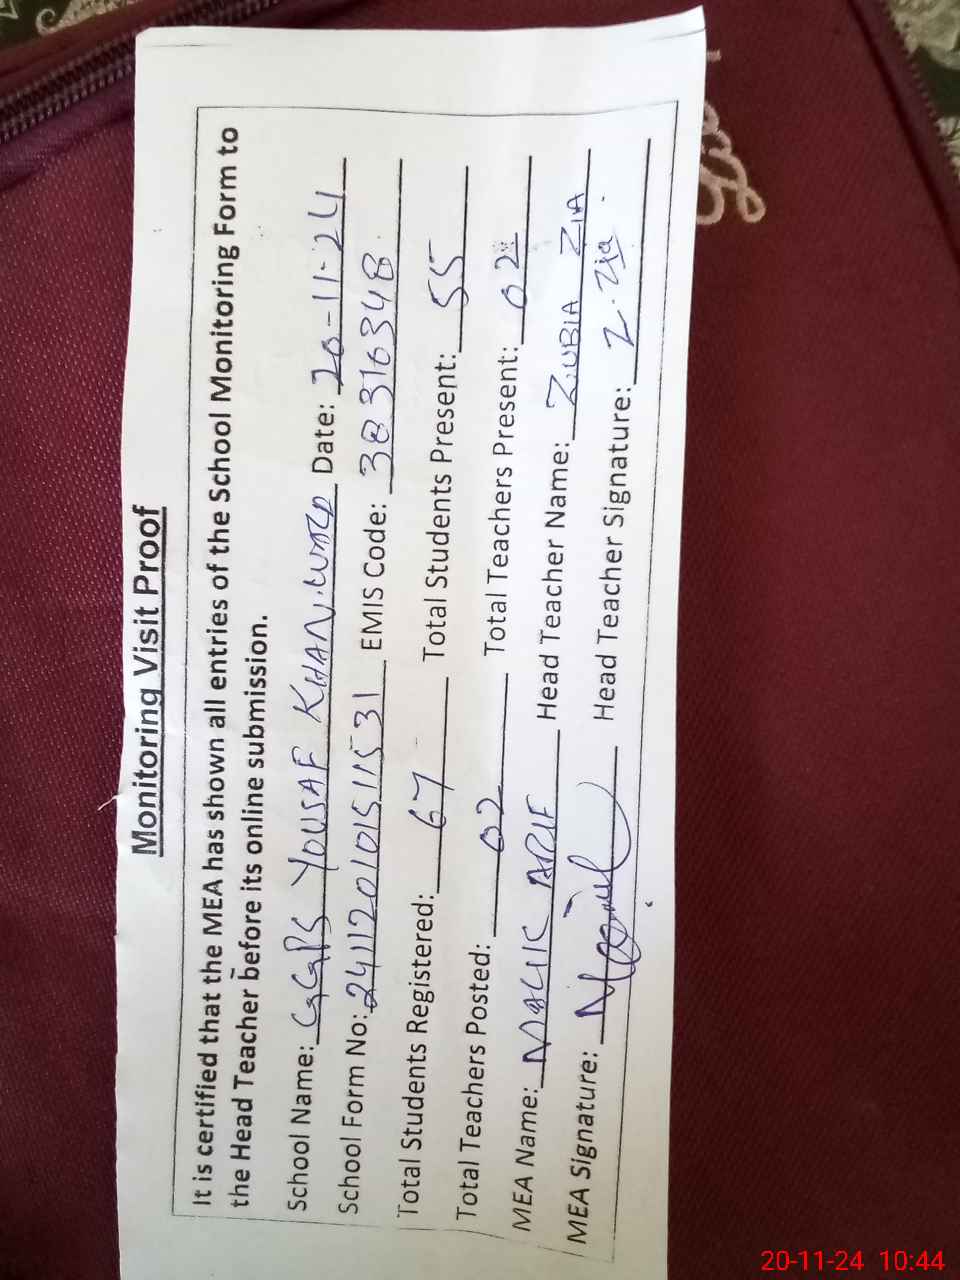 Monitoring Visit Proof
It is certified that the MEA has shown all entries of the School Monitoring Form to
the Head Teacher before its online submission.
School Name: GGPS YOUSAF KHAN Date: 20-11-24
School Form No: 241120101511531 EMIS Code: 38310348
Total Students Registered: 67 Total Students Present: 55
Total Teachers Posted: 02 Total Teachers Present: 02
MEA Name: MALIK ARIF Head Teacher Name: ZUBIA ZIA
MEA Signature: Head Teacher Signature: Z. Zia.
20-11-24 10:44